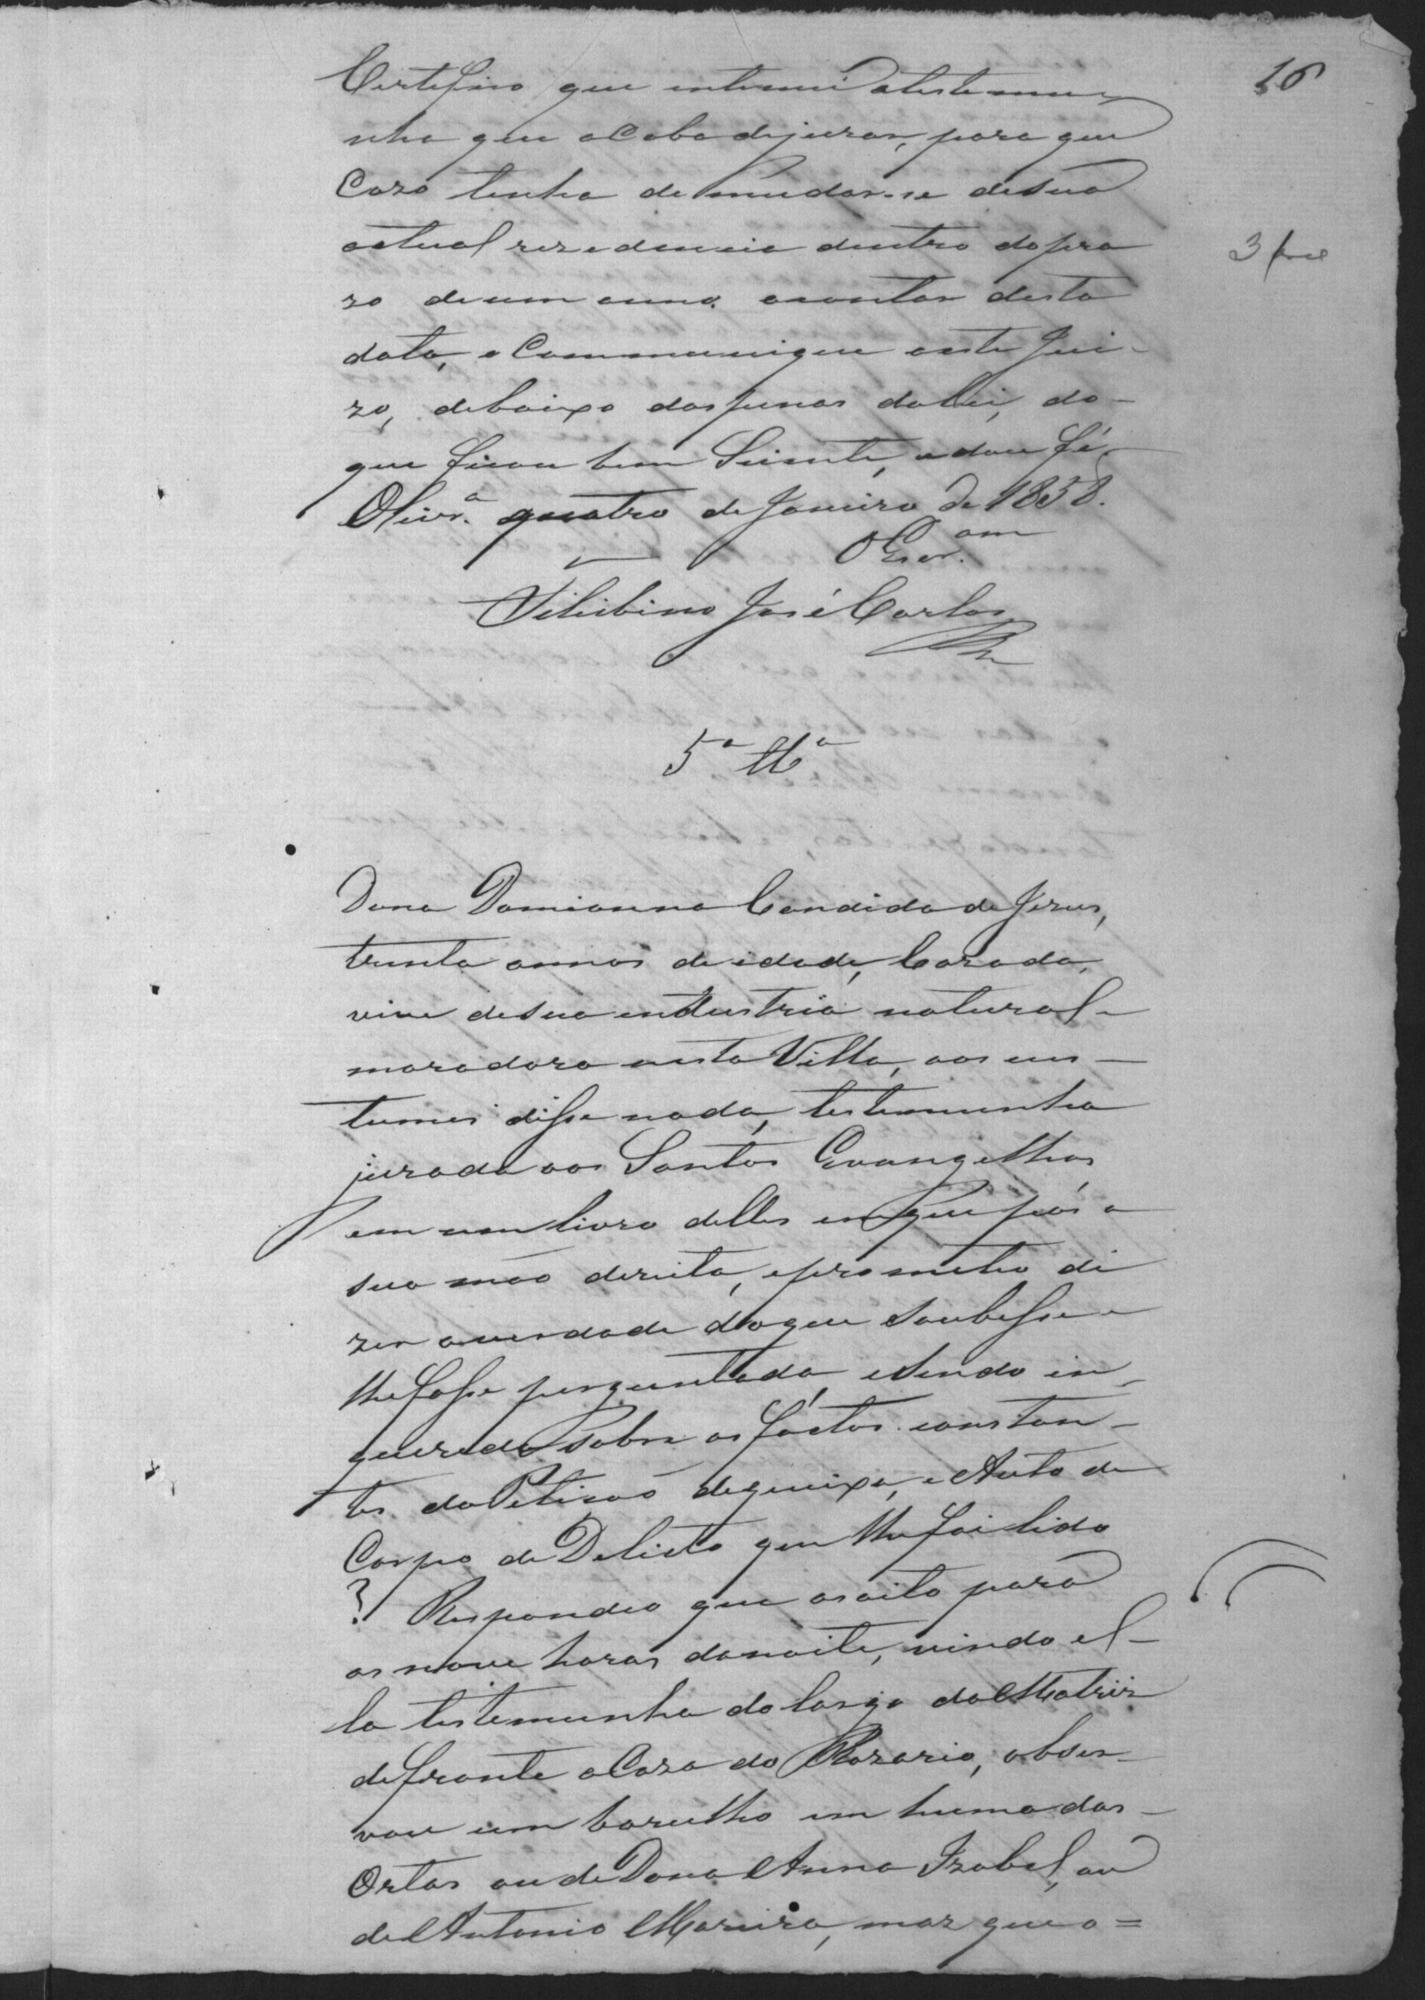 16
Certefico que intimei a testemu-
nha que acaba dejurar, para que
Cazo tenha de mudar-se desua
actual rezedencia dentro dopra
zo deum anno acontar desta
data, o Communique aeste Jui-
zo, debaixo daspenas dalei, do-
que ficou bem Sciente, edou fé.
Olivr.ª quatro de Janeiro de 1858.
OEscr.am
José Carlos
5ª Ttª
Dona Damianna Candida de Jezus,
trinta annos de idade, Cazada,
vive desua industria natural e
moradora nesta Villa, aos cus-
tumes disse nada, testemunha
jurada aos Santos Evangelhos
em um livro delles em que pôs a
sua mão direita, eprometeo di
zer averdade doque soubesse e
lhefosse perguntada, esendo in-
querida sobre os factos constan-
tes da Petisaõ dequeixa, e Auto de
Corpo de Delicto que lhe foi lido
? Respondeo que as oito para
as nove horas danoite, vindo el-
la testemunha do largo da Matriz
defronte a Caza do Rozario, obser-
vou um barulho em huma das-
Ortas ou de Dona Anna Izabel, ou
de Antonio Moreira, mas que o=